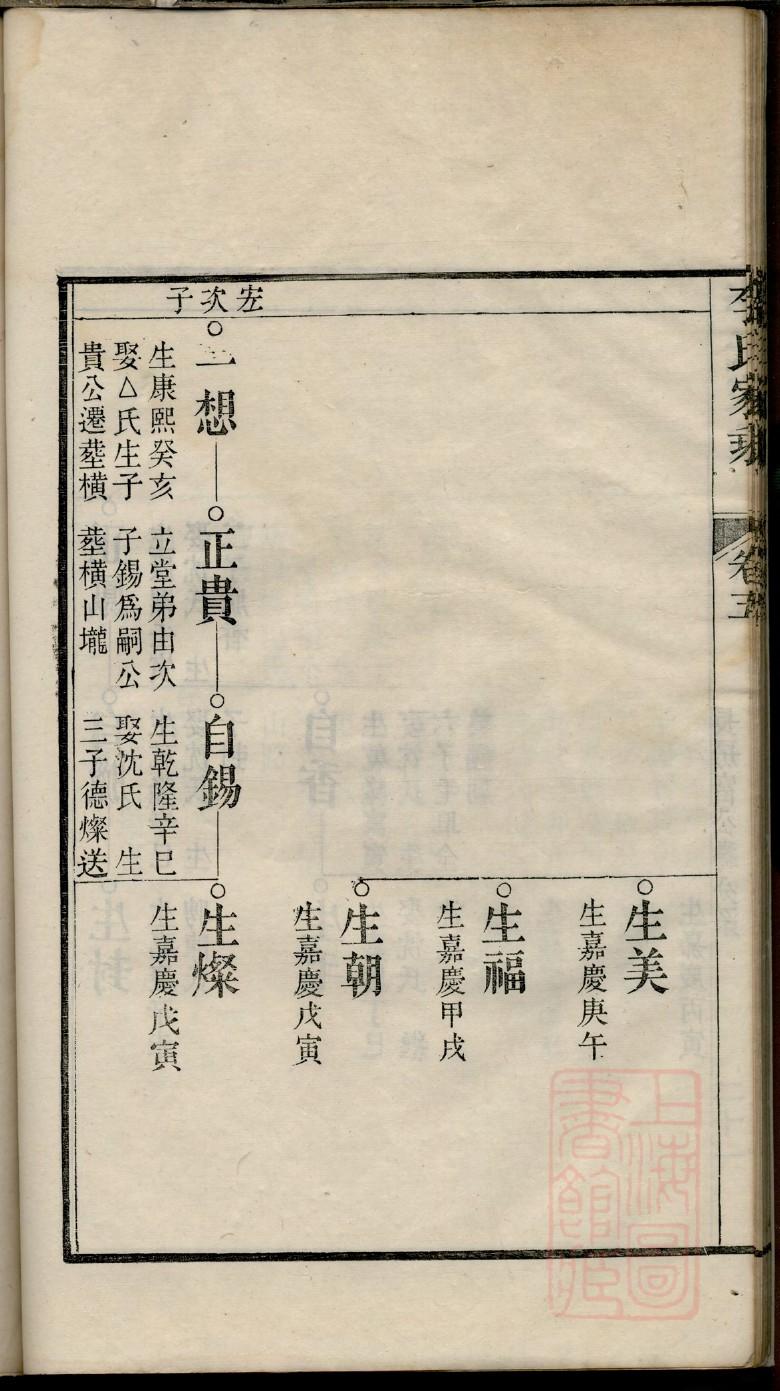 李氏家乘
卷五
生美
生嘉慶庚午
生福
生嘉慶甲戌
生朝
生嘉慶戊寅
宏次子
一想
生康熙癸亥
娶△氏生子
貴公遷塟橫
正貴
立堂弟由次
子錫爲嗣公
塟橫山壠
自錫
生乾隆辛巳
娶沈氏　生
三子德燦送
生燦
生嘉慶戊寅
上海圖
書館藏